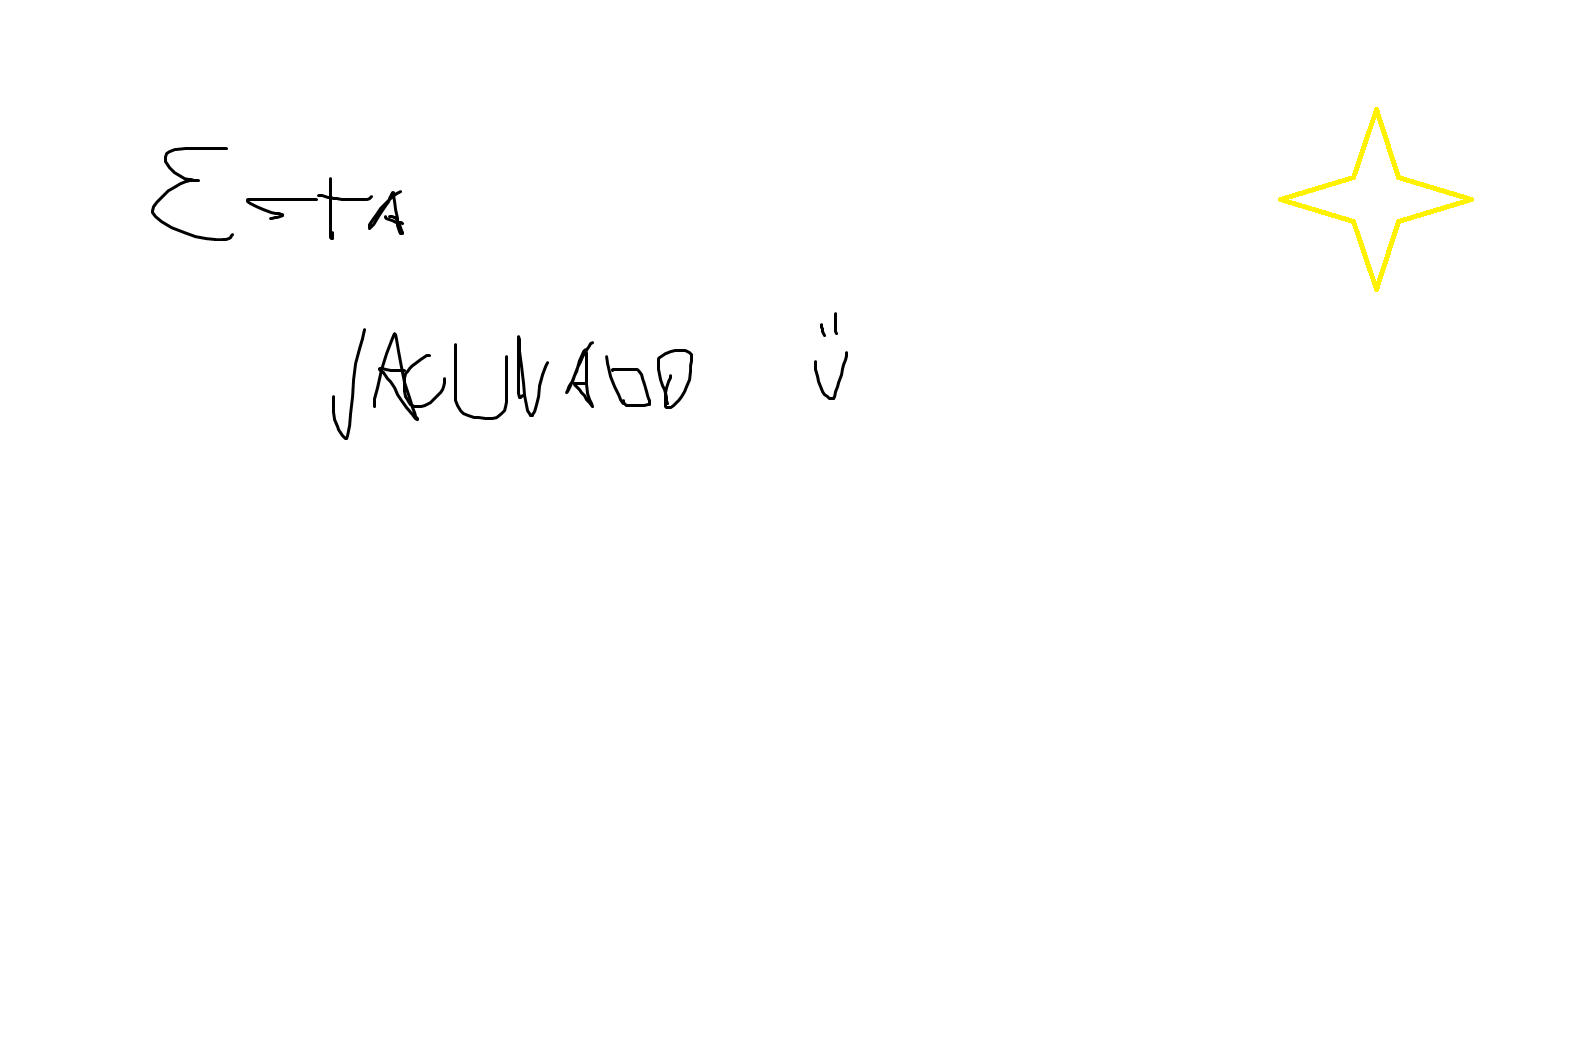 Esta
VACUNADO :)